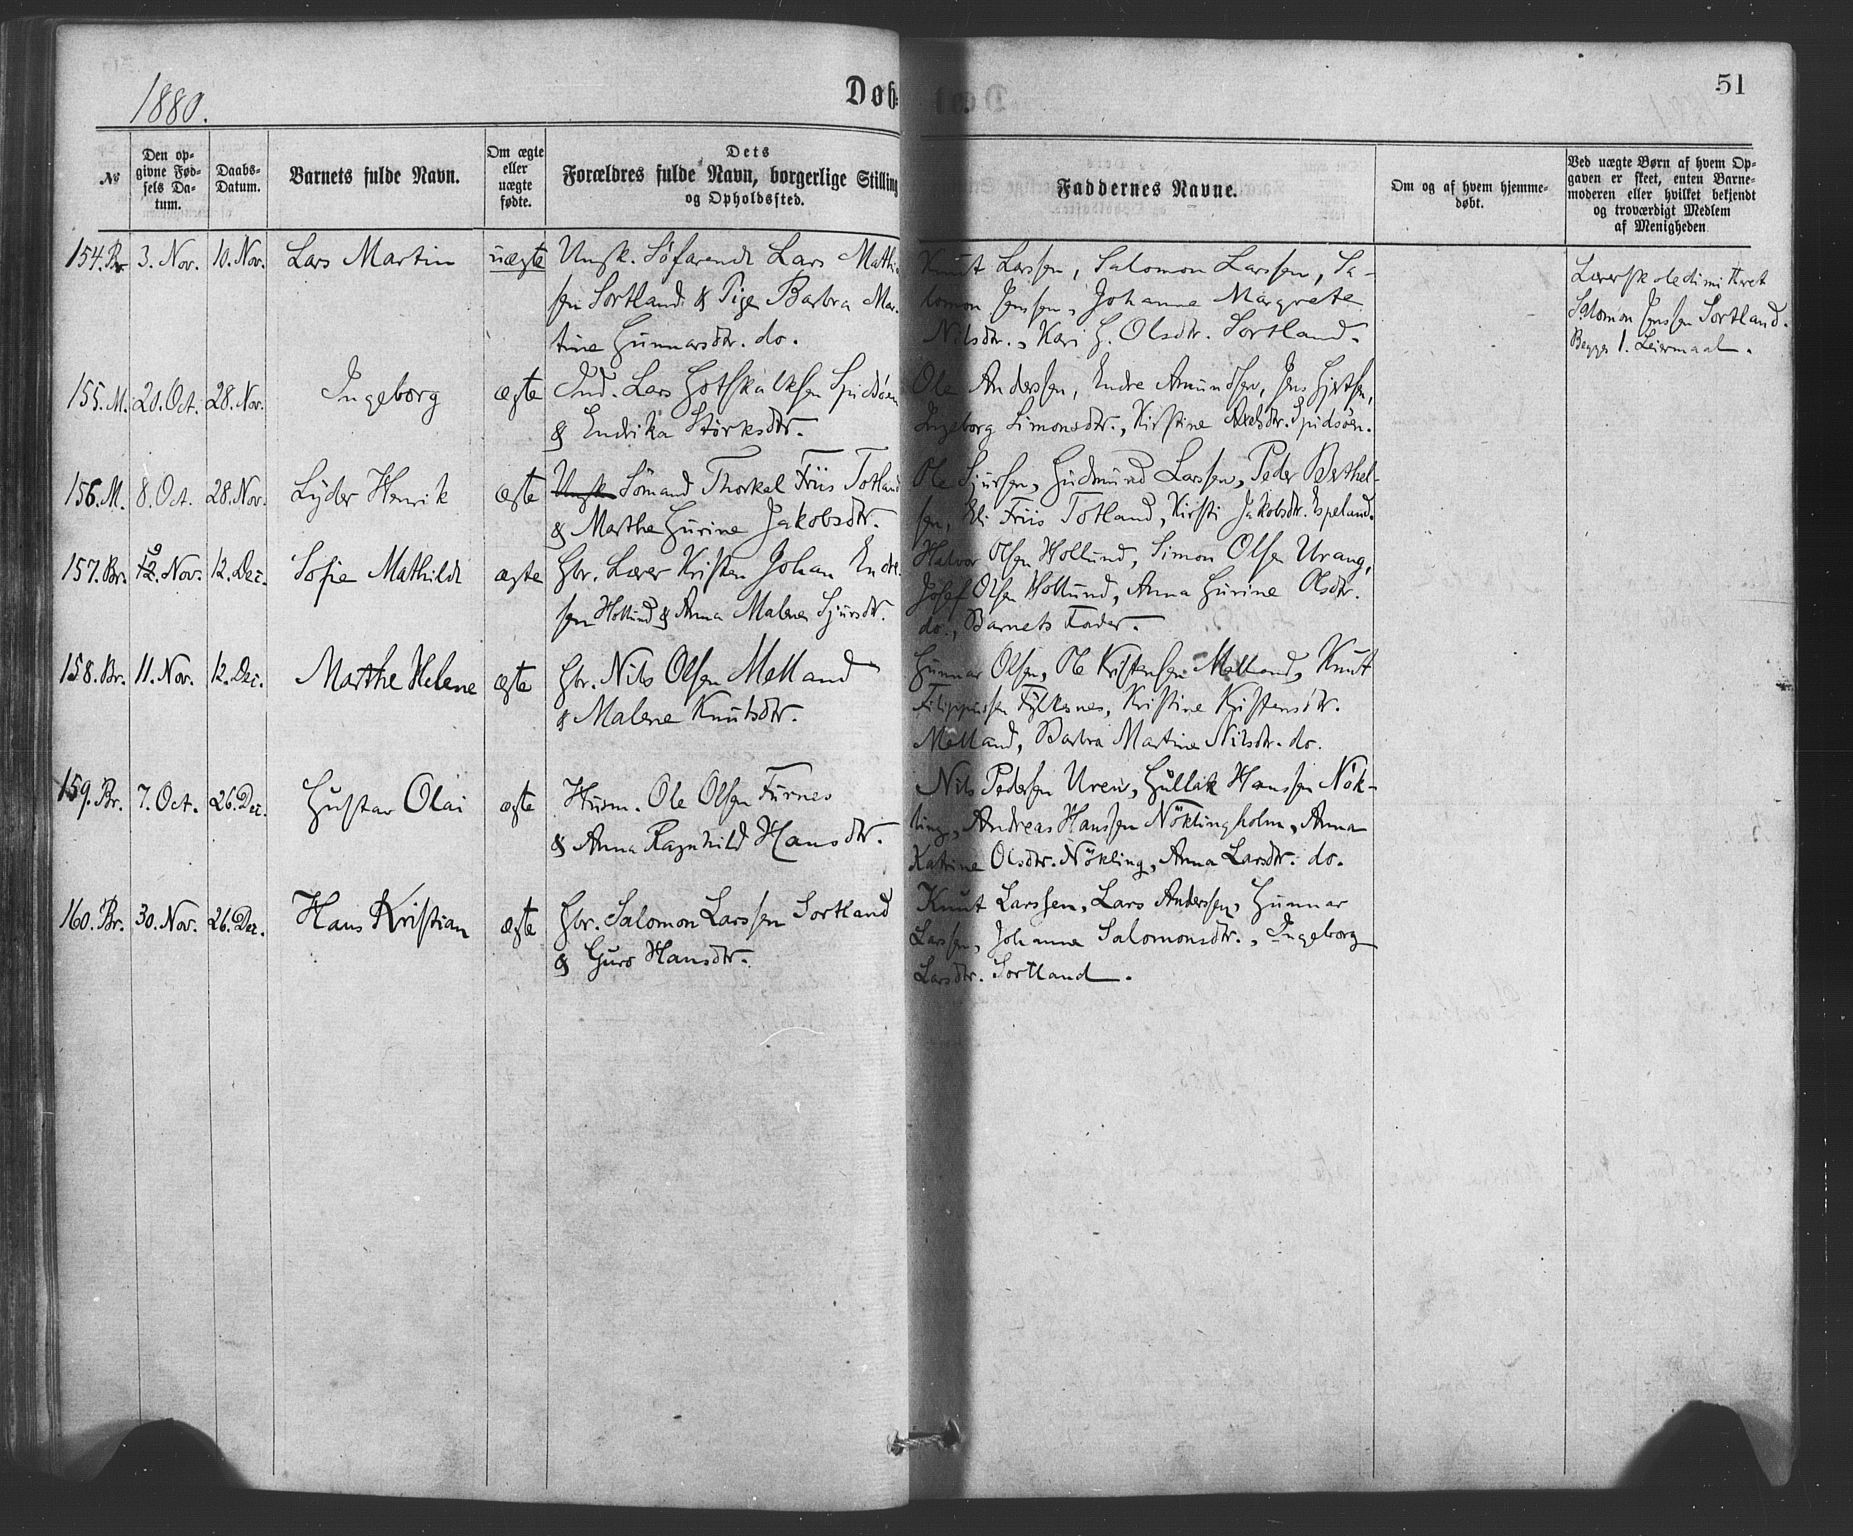 1880.
Døb-
51
№
Den op-
givne Fød-
sels Da-
tum.
Daabs-
Datum.
Barnets fulde Navn.
Om ægte
eller
uægte
fødte.
Dets
Forældres fulde Navn, borgerlige Stilling
og Opholdssted.
Faddernes Navne.
Om og af hvem hjemme-
døbt.
Ved uægte Børn af hvem Op-
gaven er skeet, enten Barne-
moderen eller hvilket bekjendt
og troværdigt Medlem
af Menigheden
154. Br. 3. Nov. 10. Nov. Lars Martin uægte Ungk. Søfarende Lars Mathi-
sen Sortland & Pige Barbra Mar-
tine Gunnarsdtr. do.
Knut Larssen, Salomon Larssen, Sa-
lomon Jenssen, Johanne Margrete
Nilsdtr., Kari G. Olsdtr. Sortland.
Lærerskoledimitteret
Salomon Jenssen Sortland.
Begges 1. Leiermaal.
155. M. 20. Oct. 28. Nov. Ingeborg ægte Ind. Lars Gotskalksen Spidsøen
& Endrika Størksdtr.
Ole Anderssen, Endre Amundsen, Jens Gjertsen,
Ingeborg Simonsdtr., Kirstine Axelsdtr. Spidsøen.
156. M. 8. Oct. 28. Nov. Lyder Henrik ægte Ungk. Sömand Thorkel Friis Totland
& Marthe Gurine Jakobsdtr.
Ole Sjursen, Gudmund Larssen, Peder Berthel-
sen, Eli Friis Totland, Kirsti Jakobsdtr. Espeland.
157. Br. 12. Nov. 12. Dec. Sofie Mathilde ægte Gbr. Lærer Kristen Johan Endre-
sen Hollund & Anna Malene Sjursdtr.
Halvor Olsen Hollund, Simon Olsen Urang,
Josef Olsen Hollund, Anna Gurine Olsdtr.
do., Barnets Fader.
158. Br. 11. Nov. 12. Dec. Marthe Helene ægte Gbr. Nils Olsen Melland
& Malene Knutsdtr.
Gunnar Olsen, Ole Kristensen Melland, Knut
Filippussen Fylkesnes, Kristine Kristensdtr.
Melland, Barbra Martine Nilsdtr. do.
159. Br. 7. Oct. 26. Dec. Gustav Olai ægte Husm. Ole Olsen Furnes
& Anna Ragnhild Hansdtr.
Nils Pedersen Uren, Gullak Hanssen Nök-
ling, Andreas Hanssen Nöklingholm, Anna
Katrine Olsdtr. Nökling, Anna Larsdtr. do.
160. Br. 30. Nov. 26. Dec. Hans Kristian ægte Gbr. Salomon Larssen Sortland
& Guro Hansdtr.
Knut Larssen, Lars Anderssen, Gunnar
Larssen, Johanna Salomonsdtr., Ingeborg
Larsdtr. Sortland.